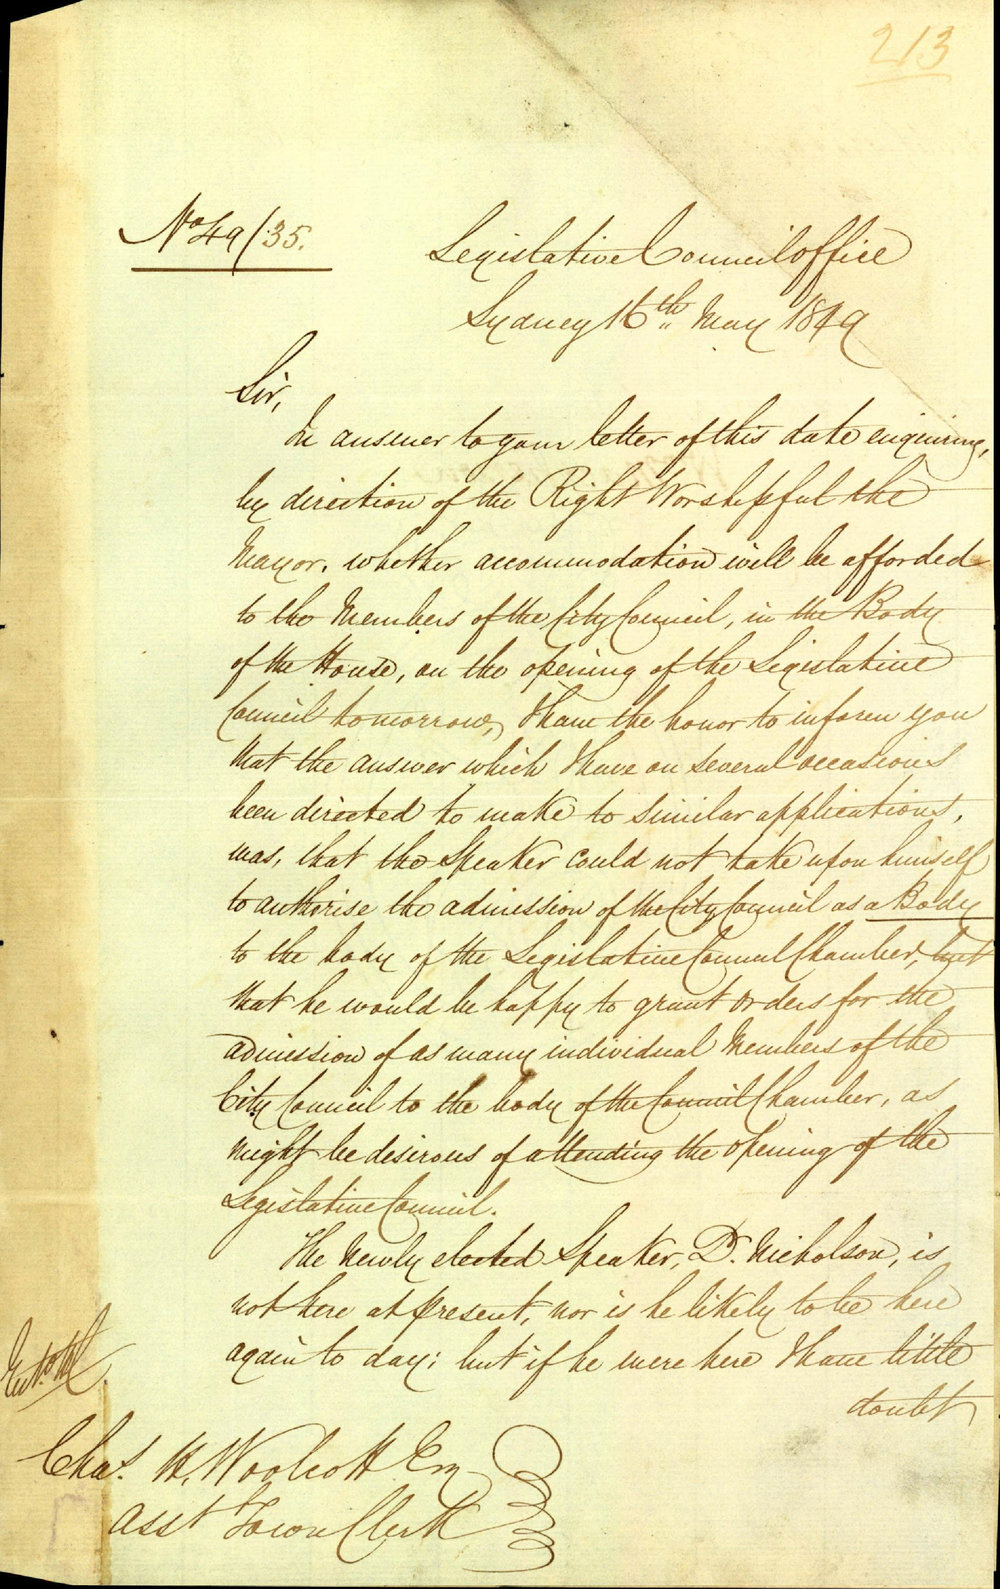 213
No 49/35.
Legislative Council Office
Sydney 16th May 1849
Sir,
In answer to your letter of this date enquiring,
by direction of the Right Worshipful the
Mayor, whether accommodation will be afforded
to the Members of the City Council, in the Body
of the House, on the opening of the Legislative
Council tomorrow, I have the honor to inform you
that the answer which I have on several occasions
been directed to make to similar applications,
was, that the Speaker could not take upon himself
to authorise the admission of the City Council as a Body
to the body of the Legislative Council Chamber, but
that he would be happy to grant orders for the
admission of as many individual Members of the
City Council to the body of the Council Chamber, as
might be desirous of attending the opening of the
Legislative Council.
The newly elected Speaker, Dr. Nicholson, is
not here at present, nor is he likely to be here
again to day; but if he were here I have little
doubt
Chas. H. Woolcott Esq
Asst Town Clerk